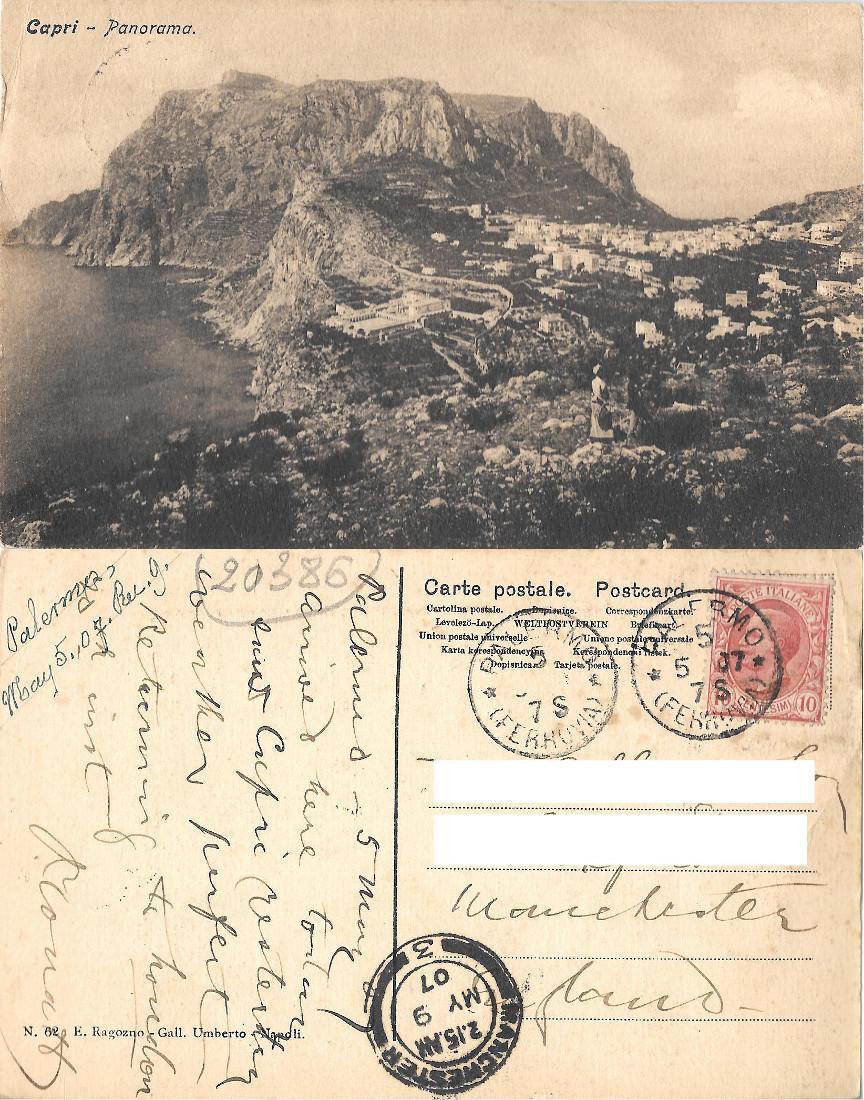 Capri - Panorama.
20386
Palermo,
May 5. 07. Rec.
Carte postale. Postcard.
Cartolina postale. Dopisnice. Correspondenzkarte.
Levelező-Lap. WELTPOSTVEREIN Briefkaart.
Union postale universelle Unione postale universale
Karta korespondencyjna Korespondenční lístek.
Dopisnica Tarjeta postale.
PALERMO
5
7 S
(FERROVIA)
PALERMO
5
5 07
7 S
(FERROVIA)
POSTE ITALIANE
10
Palermo - 5 May 07
Arrived here today
Capri Yesterday
weather perfect
Returning to London
inst
Manchester
England
MANCHESTER
2.15 AM
9
MY
07
3
N. 62 E. Ragozno - Gall. Umberto - Napoli.